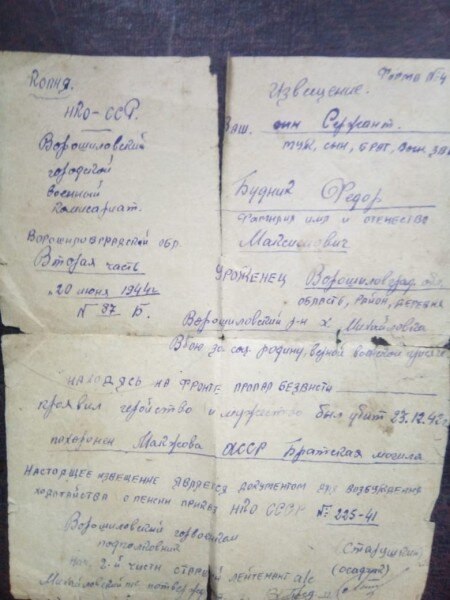 Копия.
НКО-ССР.
Ворошиловский
городской
военный
комисариат.
Ворошировградской обл
Вторая часть
"20 июня 1944г.
N 37 Б.
Форма №4
Извещение.
Ваш сын Сержант.
муж, сын, брат, воен. зв
Будний Федор
Фамилия имя и отечество
Максимович
Уроженец Ворошиловград. обл.
область, район, деревня
Ворошиловский р-н х. Михайловка
В бою за соц. родину, верной воинской присяге
находясь на фронте пропал безвисти
проявил геройство и мужество был убит 23.12.42г
похоронен АССР Братская могила
Настоящее извещение является документом для возбуждения
ходотайства о пенсии приказ НКО СССР № 225-41
Ворошиловский горвоенком
подполковник
нач. 2-й части старший лейтенант а/с
Михайловский